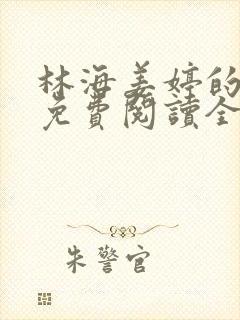 林海姜婷的
免費閱讀全
朱警官